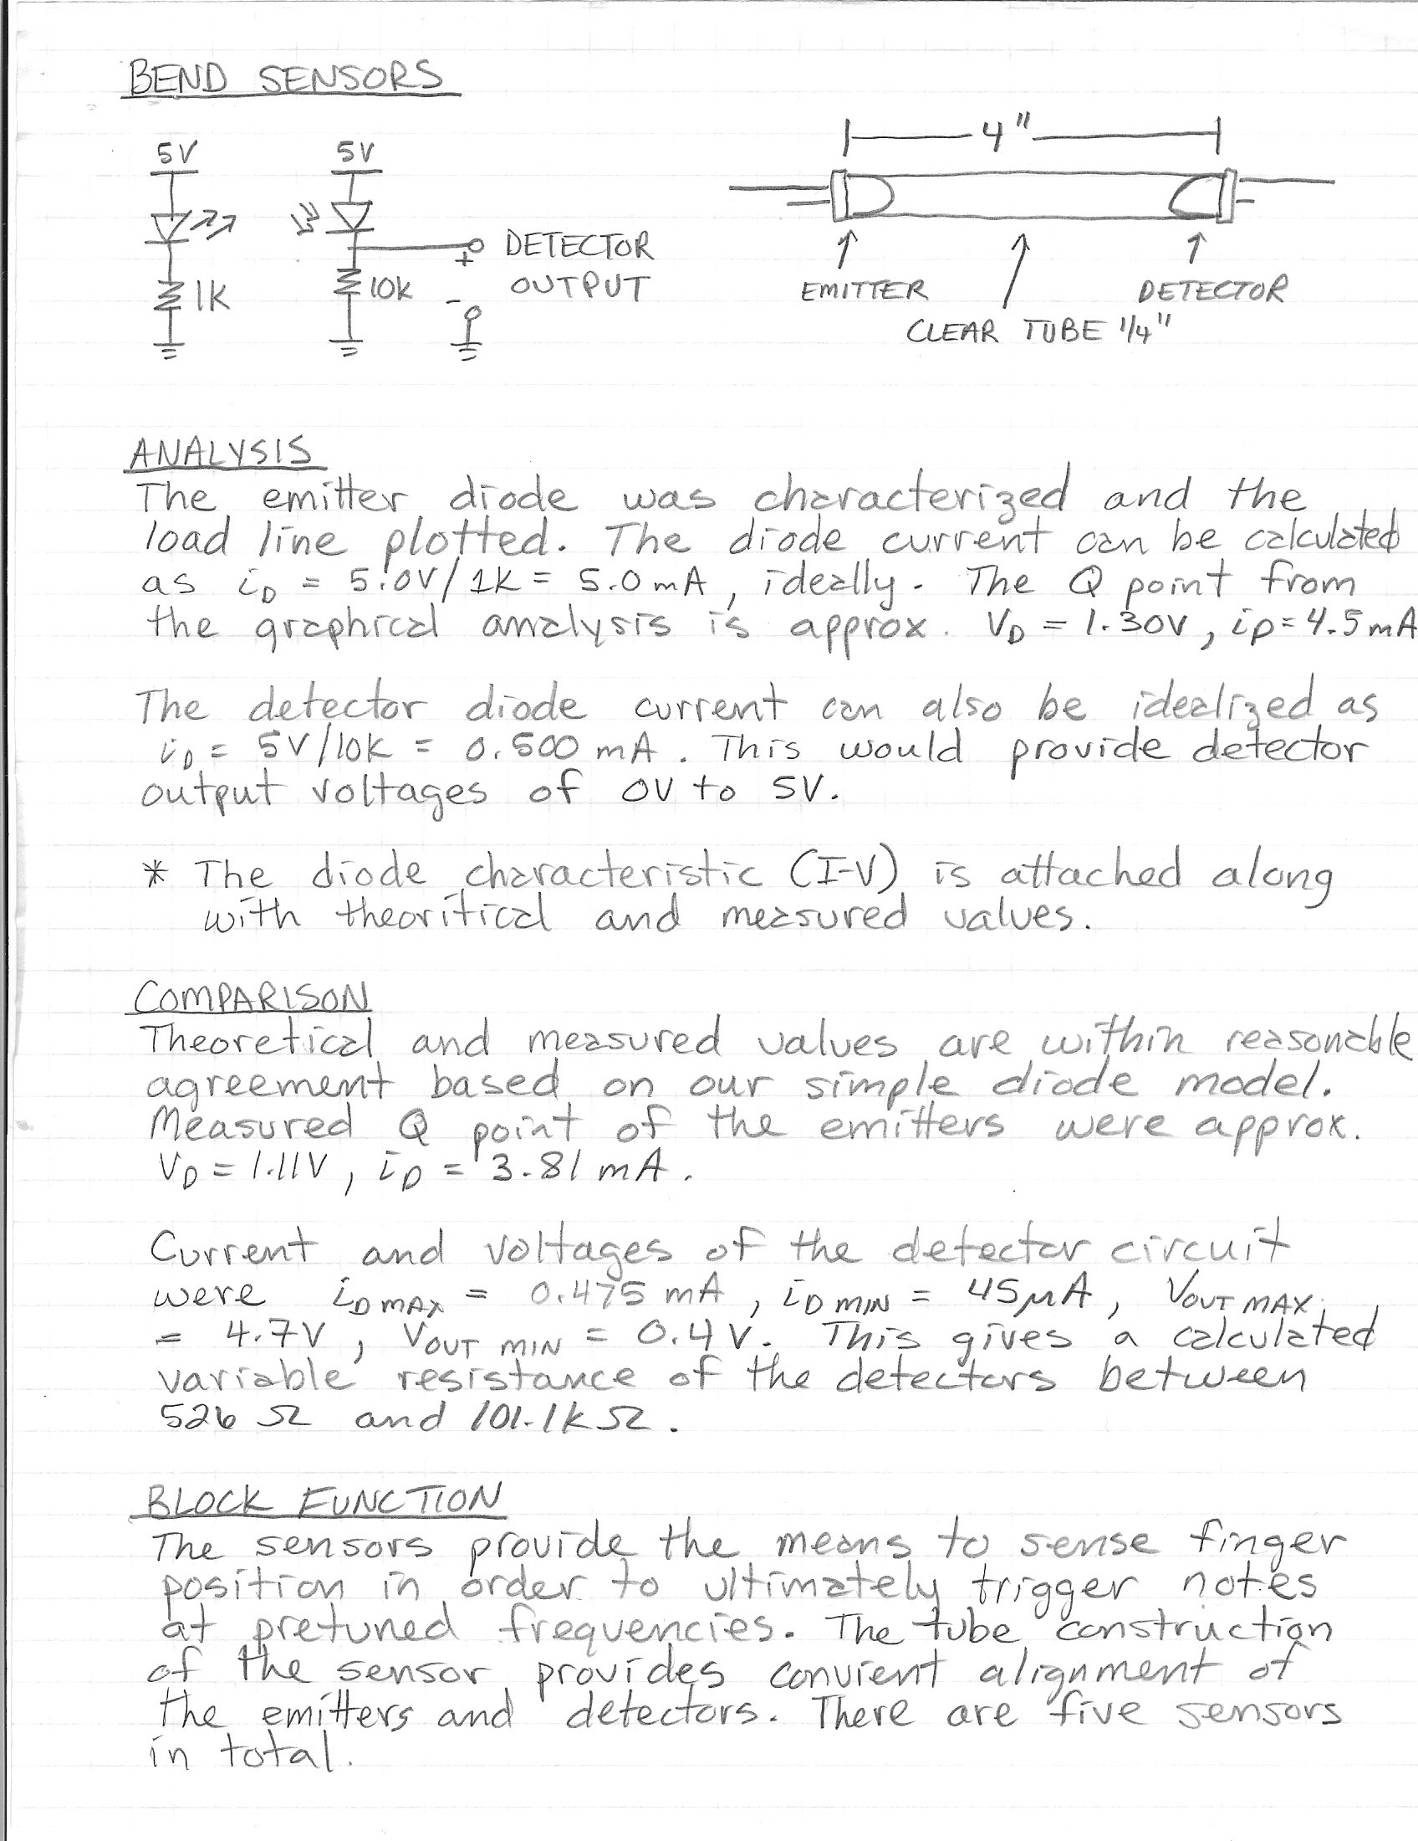 BEND SENSORS
5V
5V
4"
DETECTOR
+
OUTPUT
1K
10K
-
EMITTER
DETECTOR
CLEAR TUBE 1/4"
ANALYSIS
The emitter diode was characterized and the
load line plotted. The diode current can be calculated
as iD = 5.0V/1K = 5.0mA, ideally. The Q point from
the graphical analysis is approx. VD = 1.30V, iD=4.5mA
The detector diode current can also be idealized as
iD = 5V/10K = 0.500 mA. This would provide detector
output voltages of 0V to 5V.
* The diode characteristic (I-V) is attached along
with theoritical and measured values.
COMPARISON
Theoretical and measured values are within reasonable
agreement based on our simple diode model.
Measured Q point of the emitters were approx.
VD = 1.11V, iD = 3.81 mA.
Current and voltages of the detector circuit
were iD MAX = 0.475 mA, iD MIN = 45μA, VOUT MAX
= 4.7V, VOUT MIN = 0.4V. This gives a calculated
variable resistance of the detectors between
526 Ω and 101.1k Ω.
BLOCK FUNCTION
The sensors provide the means to sense finger
position in order to ultimately trigger notes
at pretuned frequencies. The tube construction
of the sensor provides convient alignment of
the emitters and detectors. There are five sensors
in total.